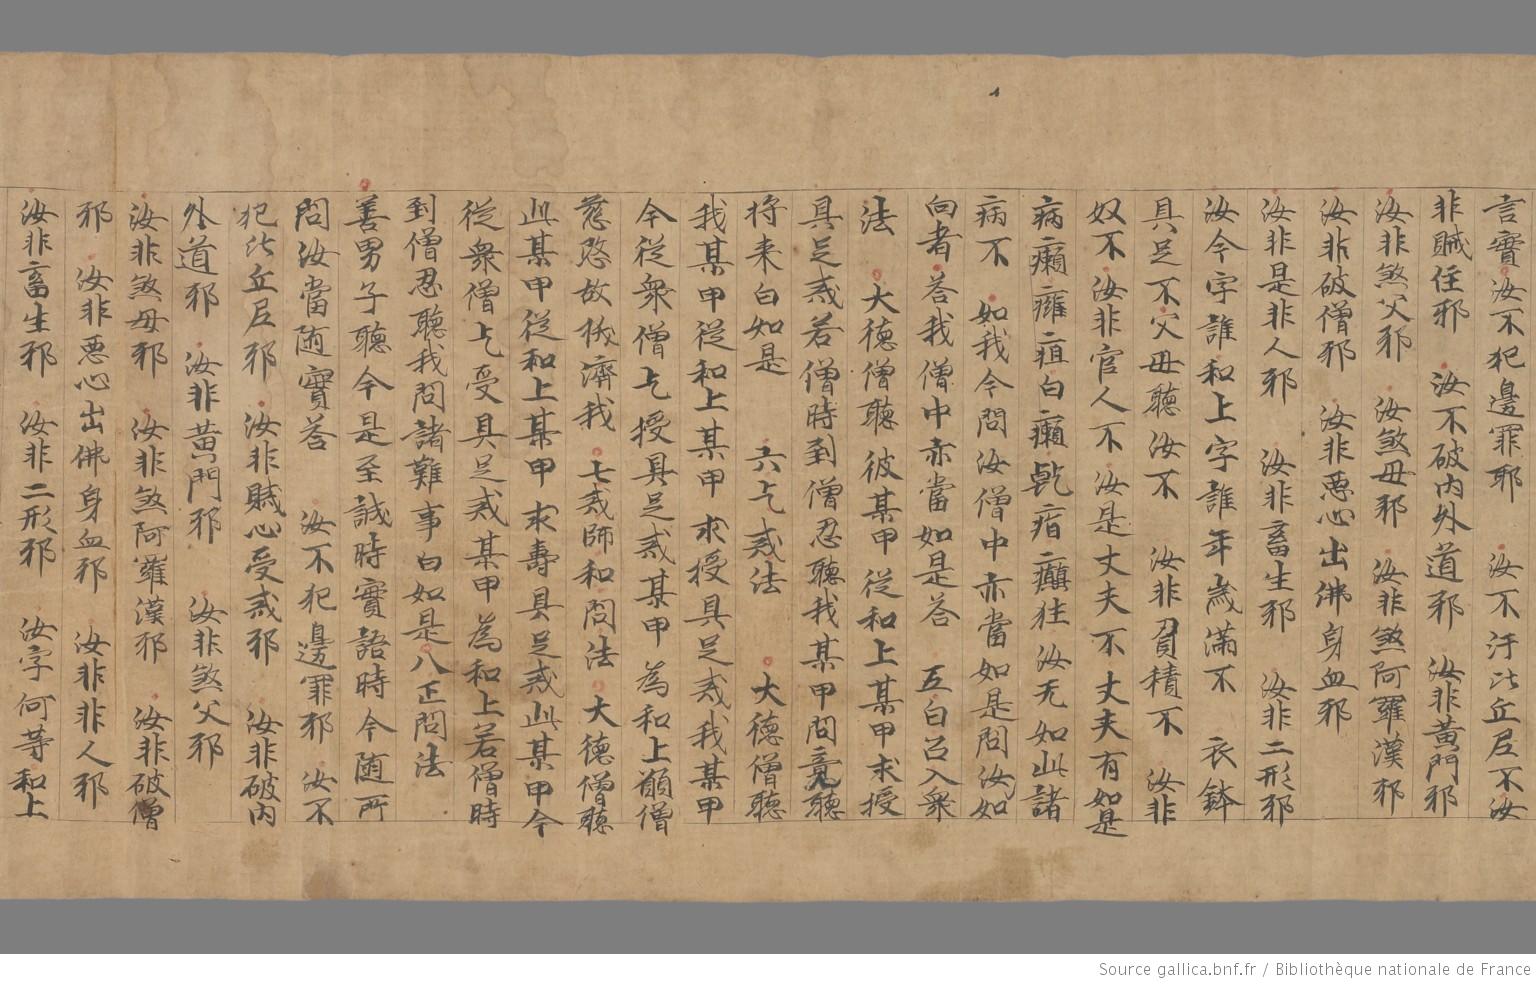 言實汝不犯邊罪耶 汝不汙比丘尼不汝
非賊住邪 汝不破内外道邪 汝非黃門邪
汝非煞父邪 汝煞毋邪 汝非煞阿羅漢邪
汝非破僧邪 汝非惡心出佛身血邪
汝非是非人邪 汝非畜生邪 汝非二形邪
汝今字誰和上字誰年歲滿不 衣鉢
具足不父毋聽汝不 汝非負積不 汝非
奴不汝非官人不汝是丈夫不丈夫有如是
病癩癰疽白癩乾痟癲狂汝无如此諸
病不 如我今問汝僧中亦當如是問汝如
向者荅我僧中亦當如是荅 五白召入衆
法 大德僧聽彼某甲從和上某甲求授
具足戒若僧時到僧忍聽我某甲問竟聽
将来白如是 六乞戒法 大德僧聽
我某甲從和上某甲求授具足戒我某甲
今從衆僧乞授具足戒某甲為和上願僧
慈愍故拔濟我 七戒師和問法 大德僧聽
此某甲從和上某甲求壽具足戒此某甲今
從衆僧乞受具足戒某甲為和上若僧時
到僧忍聽我問諸難事白如是八正問法
善男子聽今是至誠時實語時今随所
問汝當随實荅 汝不犯邊罪邪 汝不
犯比丘尼邪 汝非賊心受戒邪 汝非破内
外道邪 汝非黃門邪 汝非煞父邪
汝非煞毋邪 汝非煞阿羅漢邪 汝非破僧
邪 汝非惡心出佛身血邪 汝非非人邪
汝非畜生邪 汝非二形邪 汝字何等和上
Source gallica.bnf.fr / Bibliothèque nationale de France